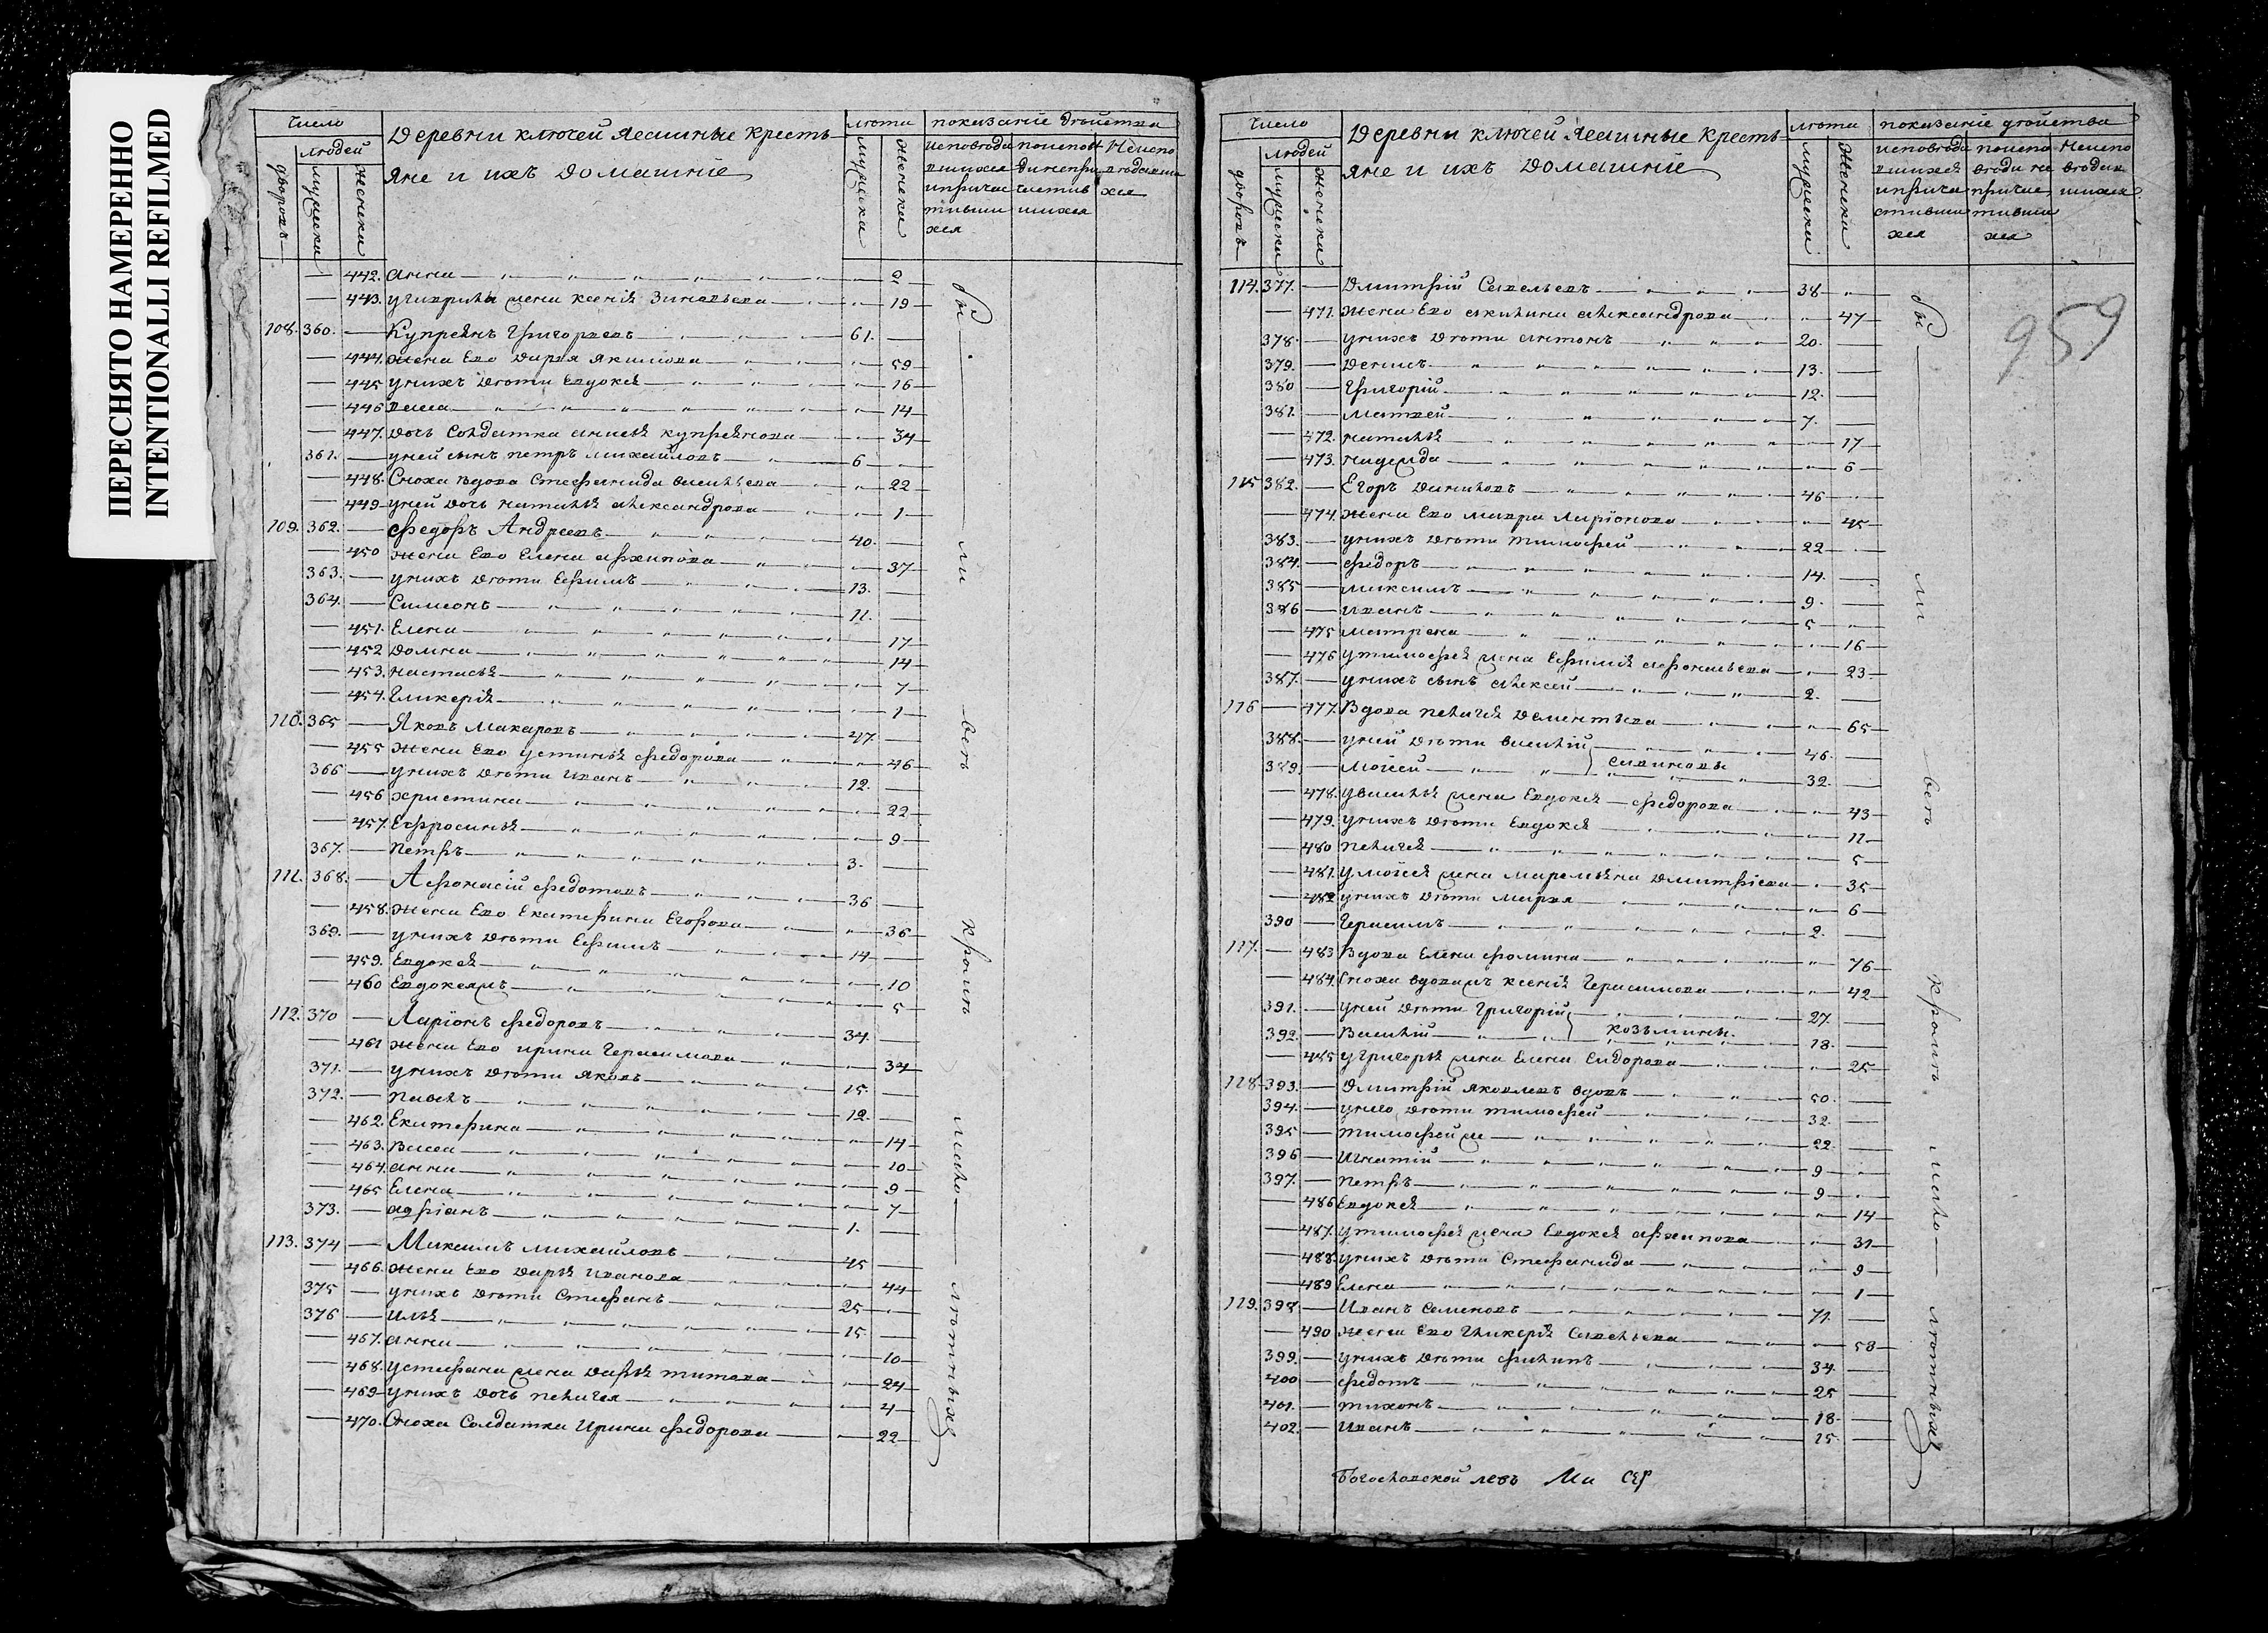 ПЕРЕСНЯТО НАМЕРЕННО
INTENTIONALLI REFILMED
Число
людей
дворовъ
мужеска
женска
Деревни ключей ясашные кресть
яне и ихъ домашніе
лѣта
мужеска
женска
показаніе дѣйства
442. Анна 2
443. у Гаврилы жена Ксенія Зиновьева 19
108. 360. Купреянъ Григорьевъ 61.
444. жена Ево Дарья Якимова 59
445 у нихъ дѣти Евдокея 16
446 Васса 14
447. дочь Солдатка Анисья Купреянова 34
361. у ней сынъ Петръ Михайловъ 6
448. Сноха вдова Стефанида Васильева 22
449 у ней дочь Наталья Александрова 1
109. 362. Федоръ Андреевъ 40.
450 жена Ево Елена Архипова 37
363. у нихъ дѣти Ефимъ 13.
364. Симионъ 11.
451. Елена 17
452 Домна 14
453. Настасья 7
454. Гликерія 1
110. 365 Яковъ Макаровъ 47.
455 жена Ево Устинья Федорова 46
366 у нихъ дѣти Иванъ 12.
456 Христина 22
457. Ефросинья 9
367. Петръ 3.
111. 368. Афонасій Федотовъ 36
458. жена Ево Екатерина Егорова 36
369. у нихъ дѣти Ефимъ 14
459. Евдокея 10
460 Евдокеяжъ 5
112. 370 Ларіонъ Федоровъ 34
461 жена Ево Ирина Герасимова 34
371. у нихъ дѣти Яковъ 15.
372. Павелъ 12.
462. Екатерина 14
463. Васса 10
464. Анна 9
465 Елена 7
373. Адріанъ 1.
113. 374 Максимъ Михайловъ 45
466. жена Ево Дарья Иванова 44
375 у нихъ дѣти Стефанъ 25
376 Илья 15
467. Анна 10
468. у Стефана жена Дарья Титова 24
469 у нихъ дочь Пелагея 4
470. Сноха Солдатка Ирина Федорова 22
бы ли веть кромѣ мало лѣтныхъ
Число
людей
дворовъ
мужеска
женска
Деревни ключей ясашные кресть
яне и ихъ домашніе
лѣта
мужеска
женска
показаніе дѣйства
959
114. 377. Дмитрій Савельевъ 38
471. жена Ево Акилина Александрова 47
378 у нихъ дѣти Антонъ 20.
379. Денисъ 13.
380 Григорій 12.
381. Матвей 7.
472. Наталья 17
473. Надежда 6
115 382. Егоръ Даниловъ 46
474. жена Ево Мавра Ларіонова 45
383. у нихъ дѣти Тимофей 22
384. Федоръ 14.
385 Максимъ 9.
386 Иванъ 5
475 Матрена 16
476 у Тимофея жена Ефимія Афонасьева 23
387. у нихъ сынъ Алексей 2.
116 477. Вдова Пелагея Дементьева 65
388. у ней дѣти Василій 46.
389. Мойсей Савиновы 32.
478. у Василья жена Евдокея Федорова 43
479. у нихъ дѣти Евдокея 11
480 Пелагея 5
481. у Мойсея жена Маремьяна Дмитріева 35
482 у нихъ дѣти Марья 6
390 Герасимъ 2.
117. 483 Вдова Елена Фомина 76
484. Сноха вдоважъ Ксенія Герасимова 42
391. у ней дѣти Григорій 27.
392. Василій Козьмины 18.
485 у Григорья жена Елена Сидорова 25
118 393. Дмитрій Яковлевъ вдовъ 50.
394. у него дѣти Тимофей 32.
395 Тимофей ж 22.
396 Игнатій 9
397. Петръ 9
486 Евдокея 14
487. у Тимофея жена Евдокея Архипова 31
488. у нихъ дѣти Стефанида 9
489 Елена 1
119. 398 Иванъ Семеновъ 71.
490 жена Ево Гликерія Савельева 58
399. у нихъ дѣти Филипъ 34.
400 Федотъ 25
401. Тихонъ 18
402. Иванъ 15.
бы ли веть кромѣ мало лѣтныхъ